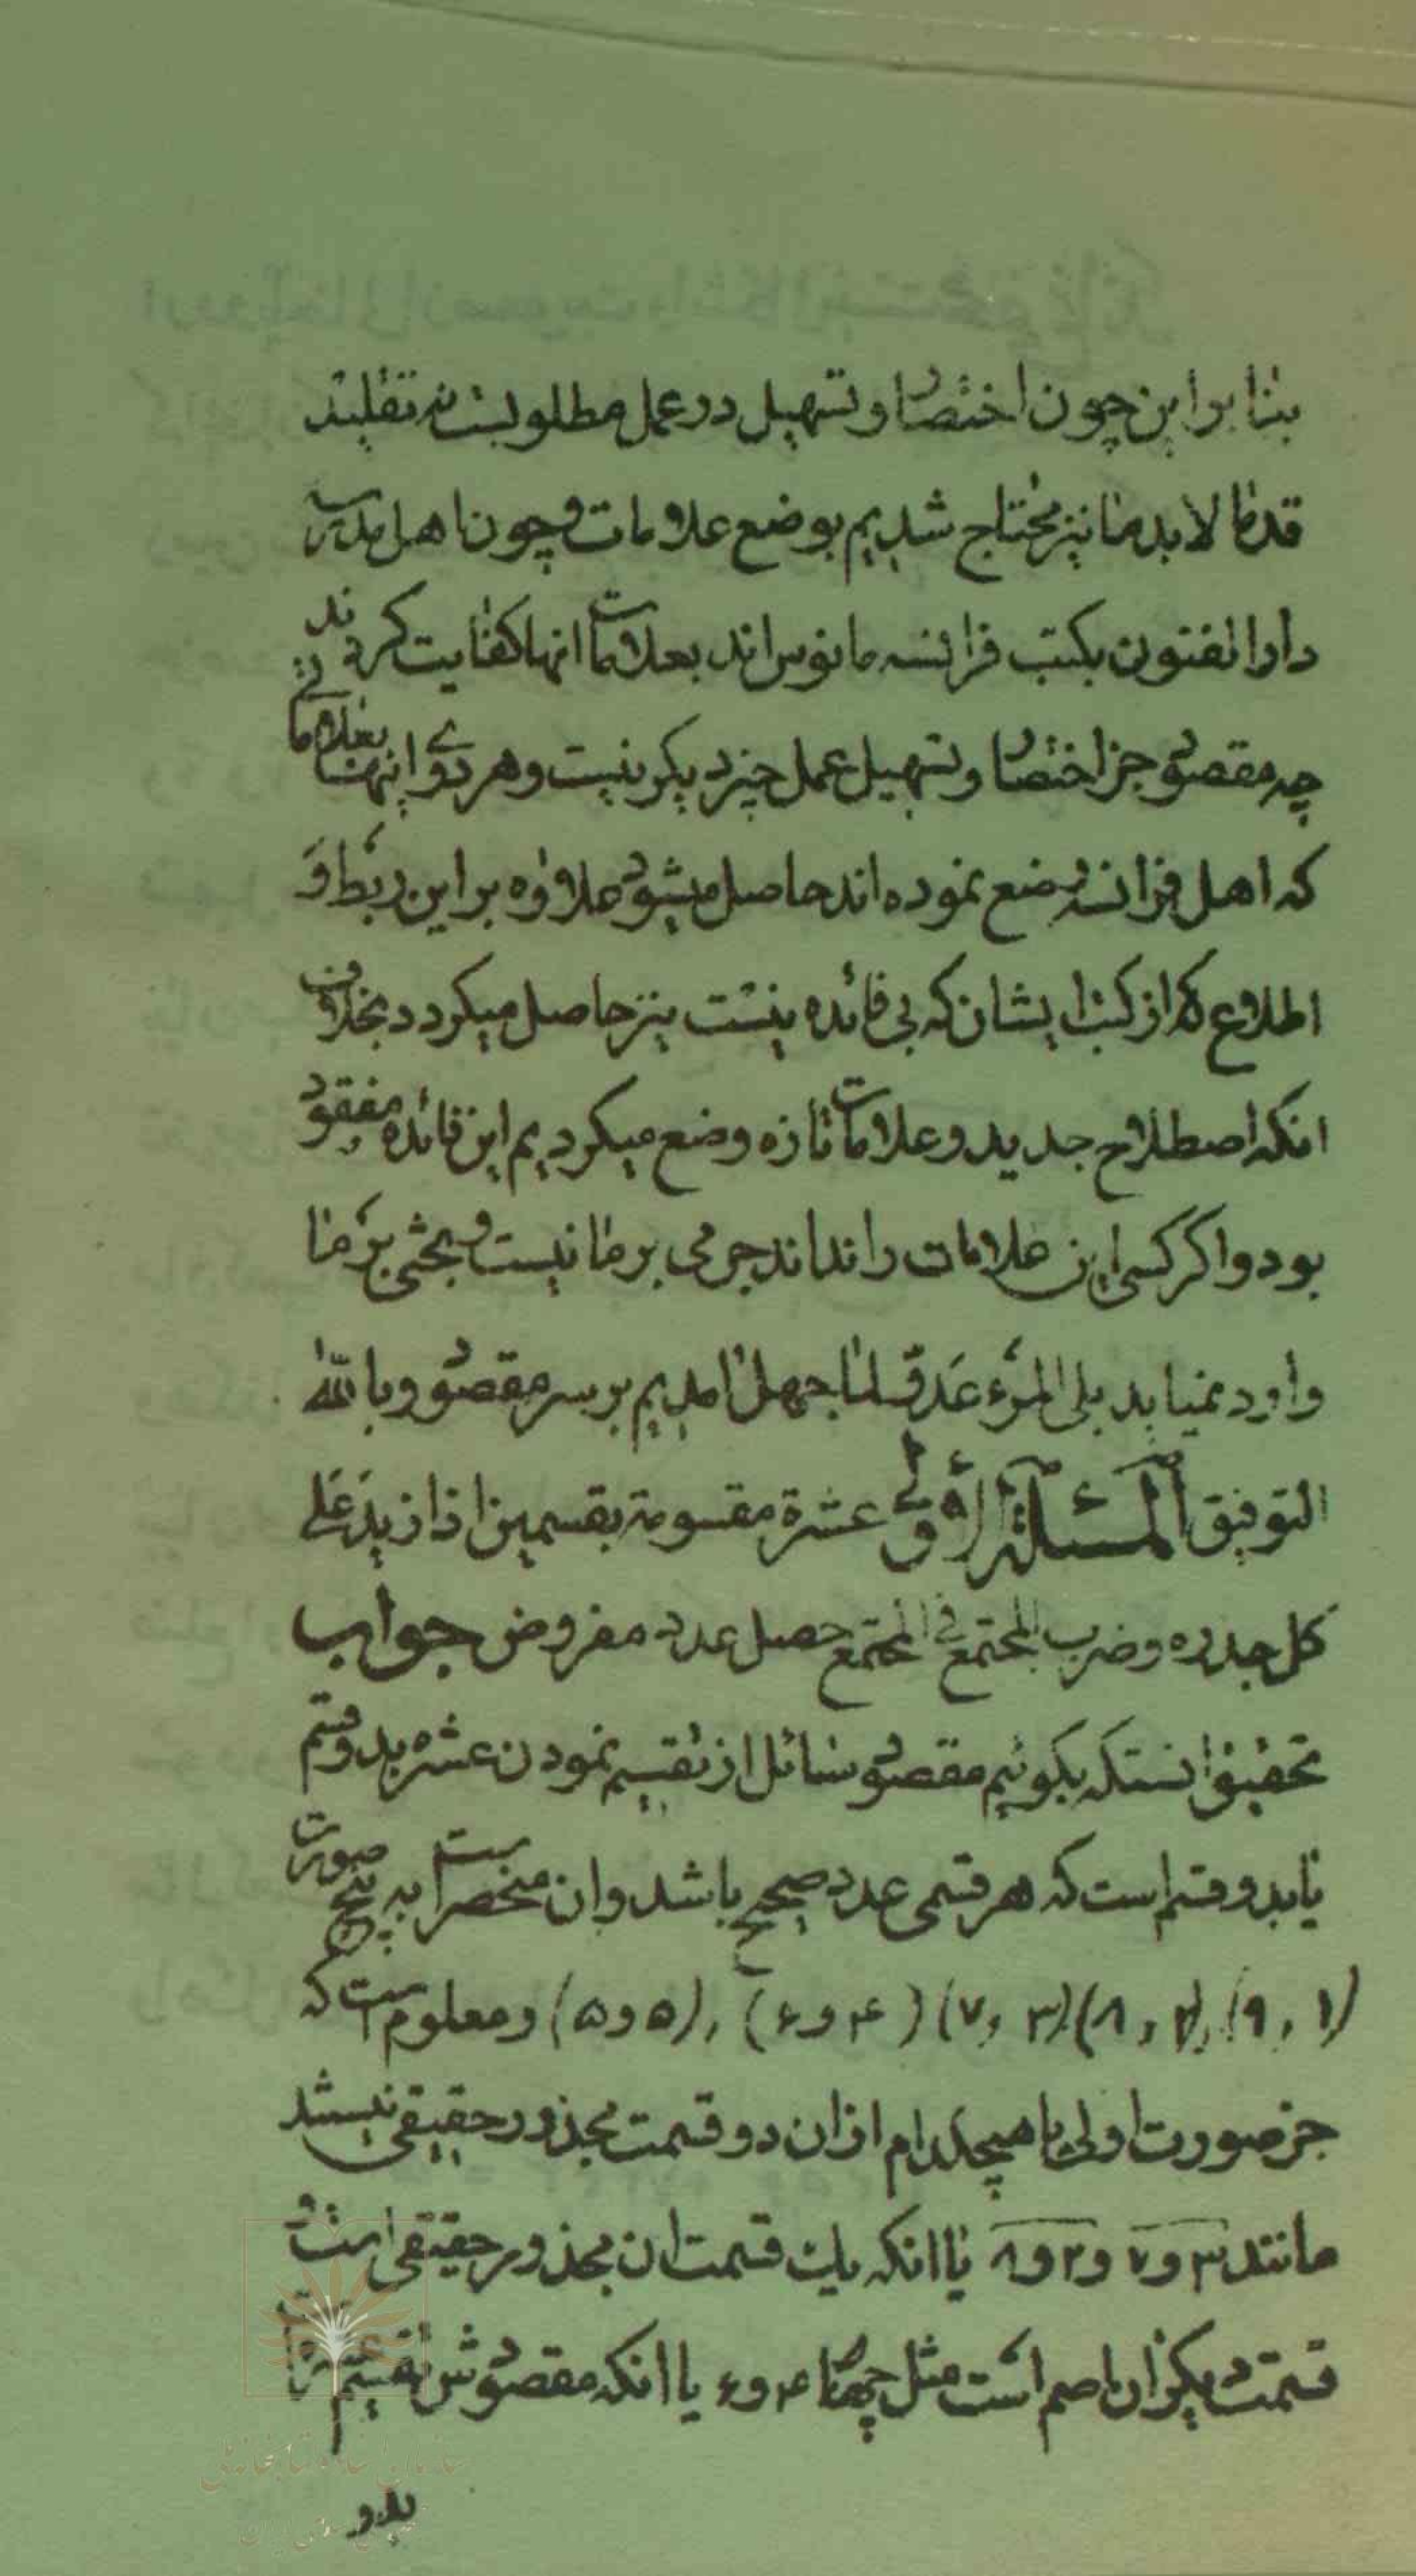 بنا بر این چون اختصار و تسهیل در عمل مطلوبست نه تقلید
قدما لابد ما نیز محتاج شدیم بوضع علامات و چون اهل مدرسه
دارالفنون بکتب فرانسه مانوس اند بعلامات انها کفایت کردند
چه مقصود جز اختصار و تسهیل عمل چیز دیگر نیست و هر دوی اینها بعلاماتی
که اهل فرانسه وضع نموده اند حاصل میشود علاوه بر این ربط و
اطلاع که از کتب ایشان که بی فائده نیست نیز حاصل میکردد بخلاف
انکه اصطلاح جدید و علامات تازه وضع میکردیم این فائده مفقود
بود و اکر کسی این علامات را نداند جرمی بر ما نیست و بحثی بر ما
وارد نمیاید بلی المرء عدو لما جهل امدیم بر سر مقصود و بالله
التوفیق المسئلة الاولی عشرة مقسومة بقسمین اذا زید علی
کل جذره و ضرب المجتمع فی المجتمع حصل عدد مفروض جواب
تحقیق انستکه بکوئیم مقصود سائل از تقسیم نمودن عشره بدو قسم
یا بدو قسم است که هر قسمی عدد صحیح باشد و ان منحصر است به پنج صورت
(۱ , ۹) , (۲ , ۸) (۳ , ۷) (۴ و ۶) , (۵ و ۵) و معلوم است که
جز صورت اولی یا هیچکدام از ان دو قسمت مجذور حقیقی نیستند
مانند ۳ و ۷ و ۲ و ۸ یا انکه یک قسمت ان مجذور حقیقی است و
قسمت دیکر ان اصم است مثل چهار ۴ و ۶ یا انکه مقصودش تقسیم
بدو